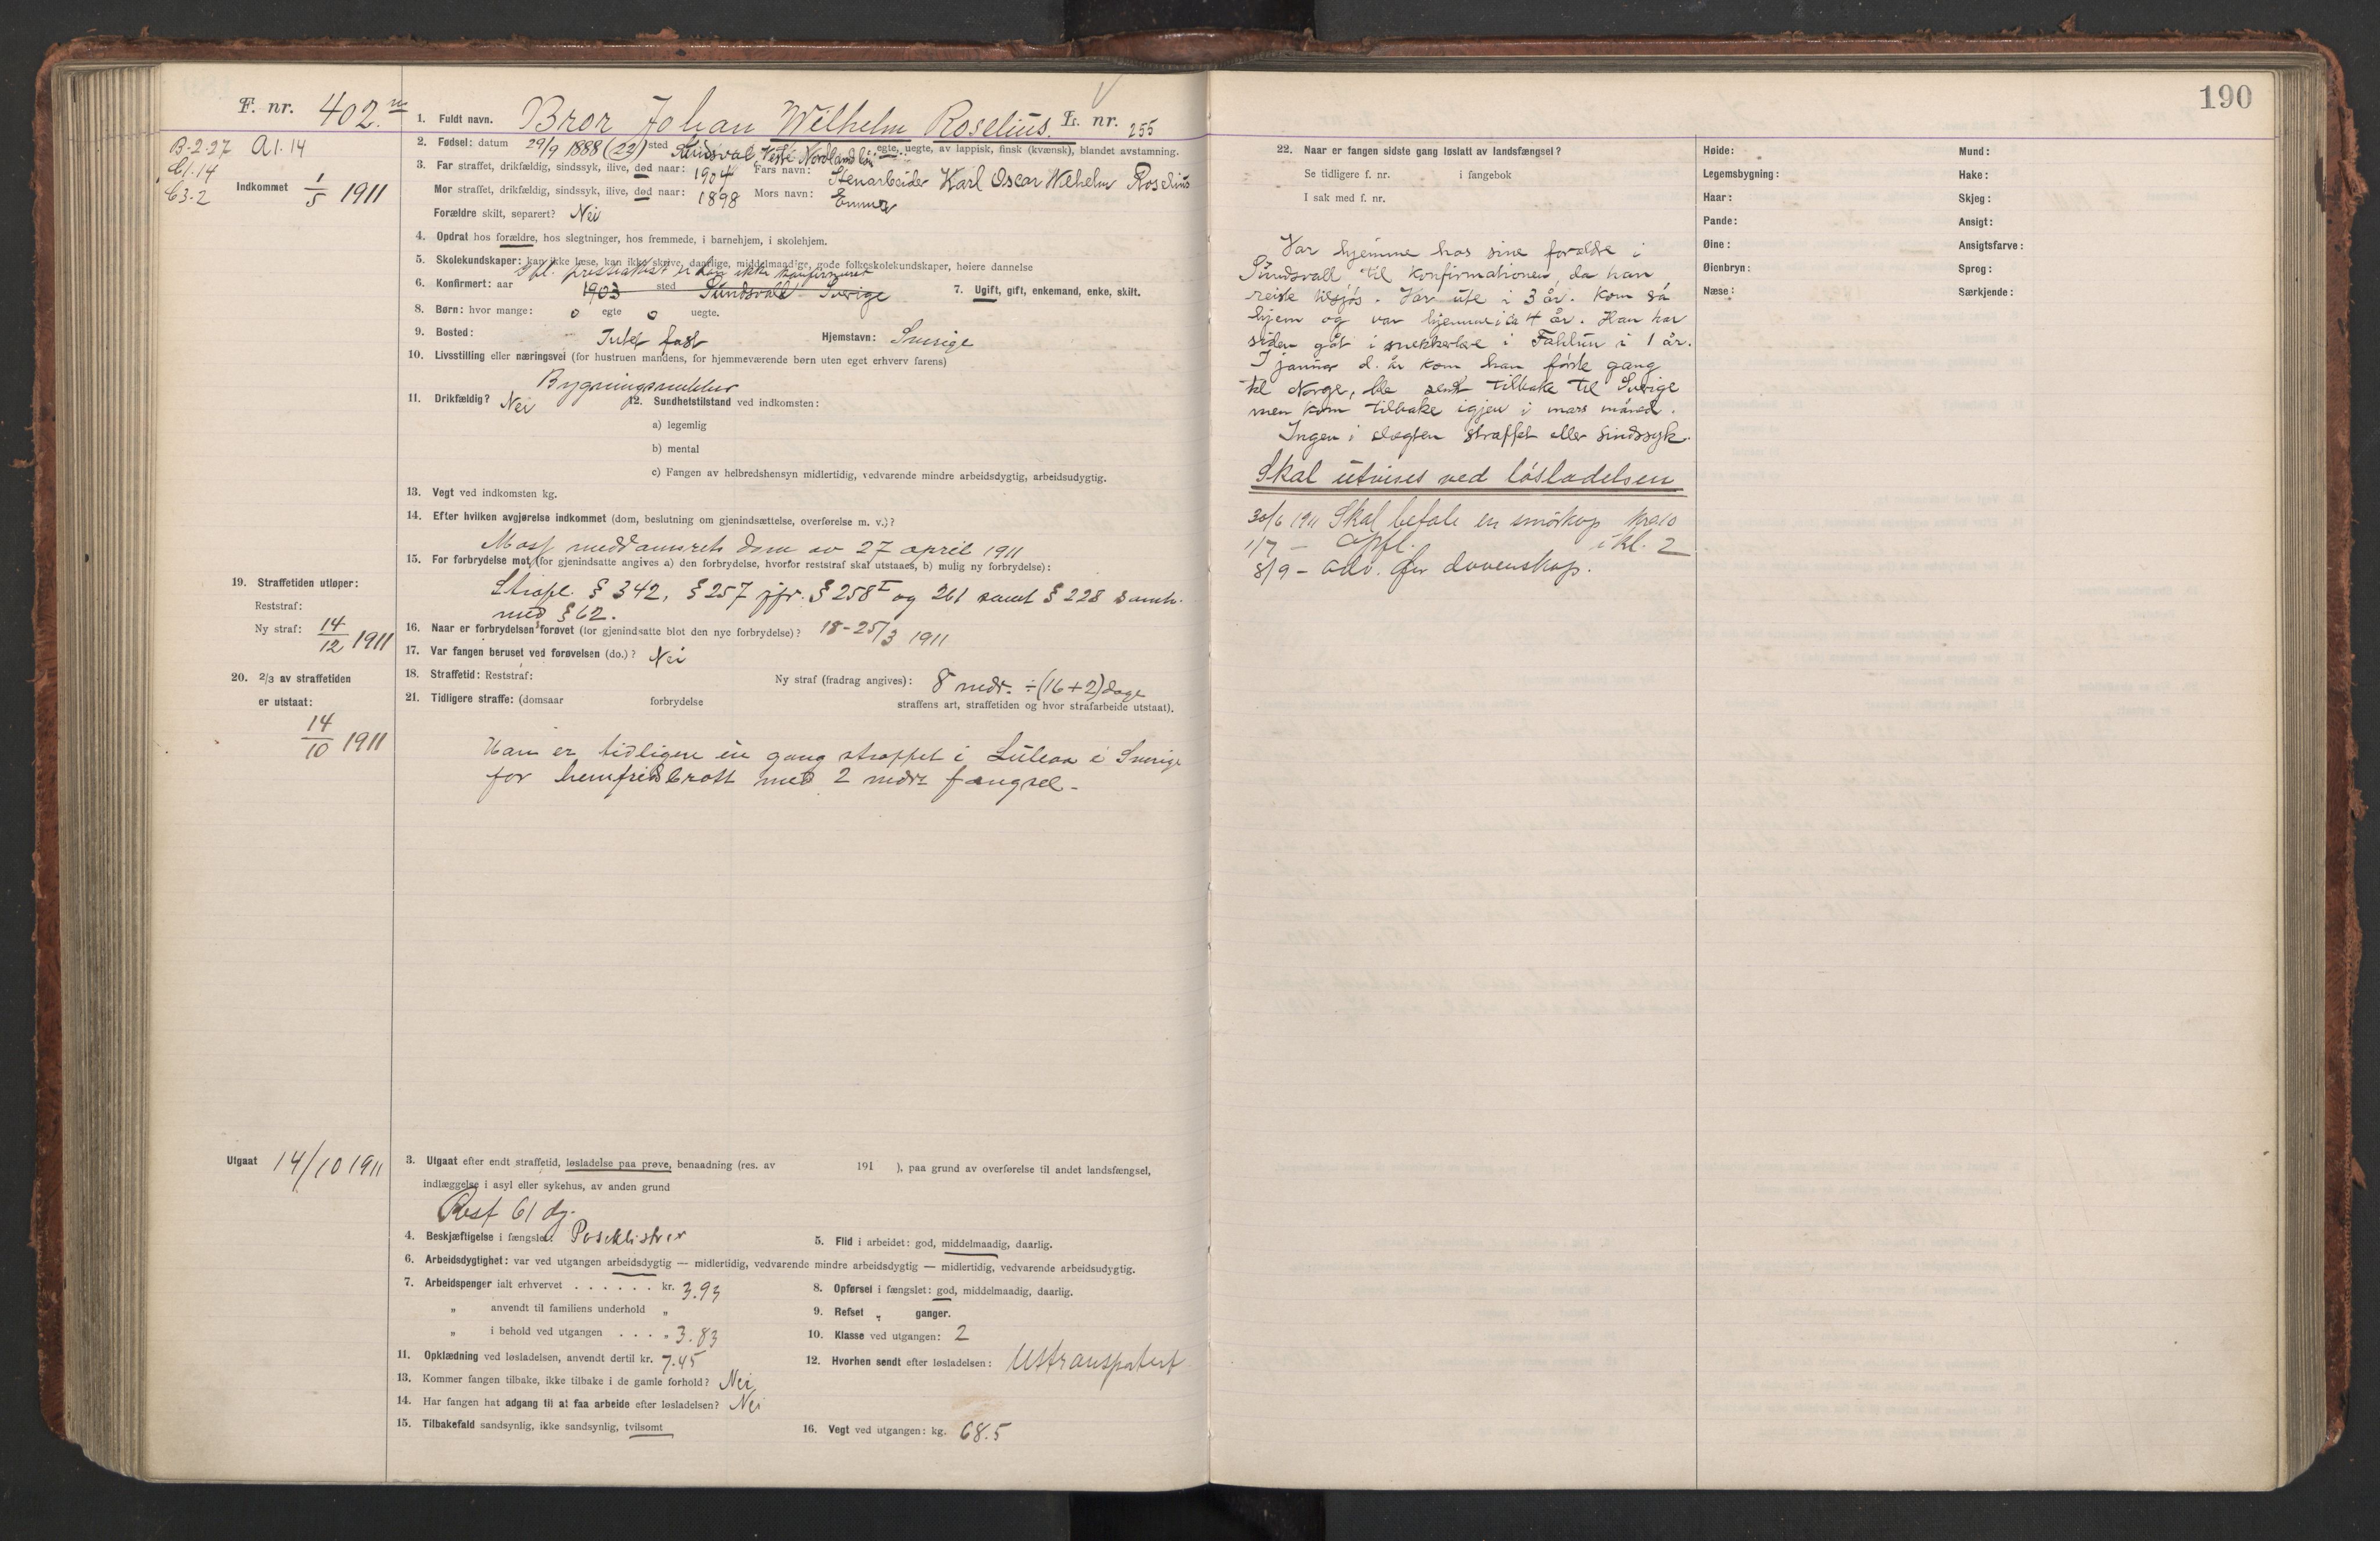 190
F. nr. 402.
1. Fuldt navn. Bror Johan Wilhelm Roselius. L. nr. 255
B-2-27 A1.14
C1.14
C3-2
Indkommet 1/5 1911
2. Fødsel: datum 29/9 1888 (22) sted Sundsval, Vester Nordland län. egte, uegte, av lappisk, finsk (kvænsk), blandet avstamning.
3. Far straffet, drikfældig, sindssyk, ilive, død naar: 1904 Fars navn: Stenarbeider Karl Oscar Wilhelm Roselius
Mor straffet, drikfældig, sindssyk, ilive, død naar: 1898 Mors navn: Emma
Forældre skilt, separert? Nei
4. Opdrat hos forældre, hos slegtninger, hos fremmede, i barnehjem, i skolehjem.
5. Skolekundskaper: kan ikke læse, kan ikke skrive, daarlige, middelmaadige, gode folkeskolekundskaper, høiere dannelse
Ifl. presteattest er han ikke konfirmeret
6. Konfirmert: aar 1903 sted Sundsvald Sverige 7. Ugift, gift, enkemand, enke, skilt.
8. Børn: hvor mange: 0 egte 0 uegte.
9. Bosted: Intet fast Hjemstavn: Sverige
10. Livsstilling eller næringsvei (for hustruen mandens, for hjemmeværende børn uten eget erhverv farens)
Bygningssnekker
11. Drikfældig? Nei 12. Sundhetstilstand ved indkomsten:
a) legemlig
b) mental
c) Fangen av helbredshensyn midlertidig, vedvarende mindre arbeidsdygtig, arbeidsudygtig.
13. Vegt ved indkomsten kg.
14. Efter hvilken avgjørelse indkommet (dom, beslutning om gjenindsættelse, overførelse m. v.)?
Moss meddomsrets dom av 27 april 1911
15. For forbrydelse mot (for gjenindsatte angives a) den forbrydelse, hvorfor reststraf skal utstaaes, b) mulig ny forbrydelse):
Strafl. § 342, § 257 jfr. § 258 I og 261 samt § 228 samh.
med § 62.
19. Straffetiden utløper:
Reststraf:
Ny straf: 14/12 1911
16. Naar er forbrydelsen forøvet (for gjenindsatte blot den nye forbrydelse)? 18-25/3 1911
17. Var fangen beruset ved forøvelsen (do.)? Nei
18. Straffetid: Reststraf: Ny straf (fradrag angives): 8 mdr. ÷ (16+2) dage
20. 2/3 av straffetiden
er utstaat:
14/10 1911
21. Tidligere straffe: (domsaar forbrydelse straffens art, straffetiden og hvor strafarbeide utstaat).
Han er tidligere én gang straffet i Luleaa i Sverige
for hemfridsbrott med 2 mdrs fængsel.
Utgaat 14/10 1911
3. Utgaat efter endt straffetid, løsladelse paa prøve, benaadning (res. av 191 ), paa grund av overførelse til andet landsfængsel,
indlæggelse i asyl eller sykehus, av anden grund
Rest 61 dg.
4. Beskjæftigelse i fængslet: Poseklistrer 5. Flid i arbeidet: god, middelmaadig, daarlig.
6. Arbeidsdygtighet: var ved utgangen arbeidsdygtig — midlertidig, vedvarende mindre arbeidsdygtig — midlertidig, vedvarende arbeidsudygtig.
7. Arbeidspenger ialt erhvervet . . . . . . kr. 3.93 8. Opførsel i fængslet: god, middelmaadig, daarlig.
„ anvendt til familiens underhold „ 9. Refset „ ganger.
„ i behold ved utgangen . . . . „ 3.83 10. Klasse ved utgangen: 2
11. Opklædning ved løsladelsen, anvendt dertil kr. 7.45 12. Hvorhen sendt efter løsladelsen: Uttransportert
13. Kommer fangen tilbake, ikke tilbake i de gamle forhold? Nei
14. Har fangen hat adgang til at faa arbeide efter løsladelsen? Nei
15. Tilbakefald sandsynlig, ikke sandsynlig, tvilsomt 16. Vegt ved utgangen: kg. 68.5
22. Naar er fangen sidste gang løslatt av landsfængsel?
Se tidligere f. nr. i fangebok
I sak med f. nr.
Var hjemme hos sine forældre i
Sundsvall til konfirmationen, da han
reiste tilsjøs. Var ute i 3 år. Kom så
hjem og var hjemme i ca 4 år. Han har
siden gåt i snekkerlære i Fahlun i 1 år.
I januar d. år kom han første gang
til Norge, ble sendt tilbake til Sverige
men kom tilbake igjen i mars måned.
Ingen i slægten straffet eller sindssyk.
Skal utvises ved løsladelsen
30/6 1911 Skal betale en smørkop
1/7 — Opfl. i kl. 2
8/9 — adv. for dovenskap.
Høide:
Legemsbygning:
Haar:
Pande:
Øine:
Øienbryn:
Næse:
Mund:
Hake:
Skjeg:
Ansigt:
Ansigtsfarve:
Sprog:
Særkjende: